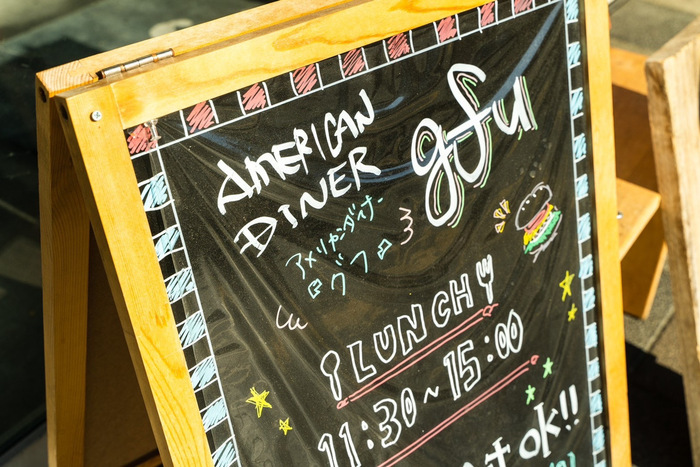 AMERICAN
DINER
gfu
アメリカンダイナー
「グフ」
LUNCH
11:30~15:00
ok!!